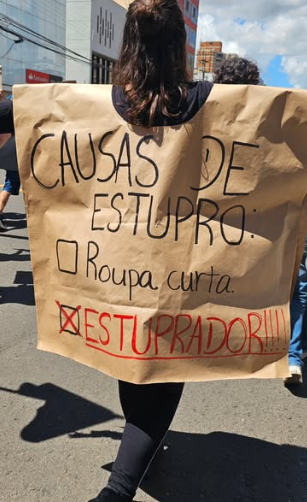 CAUSAS DE
ESTUPRO:
Roupa curta.
ESTUPRADOR!!!!